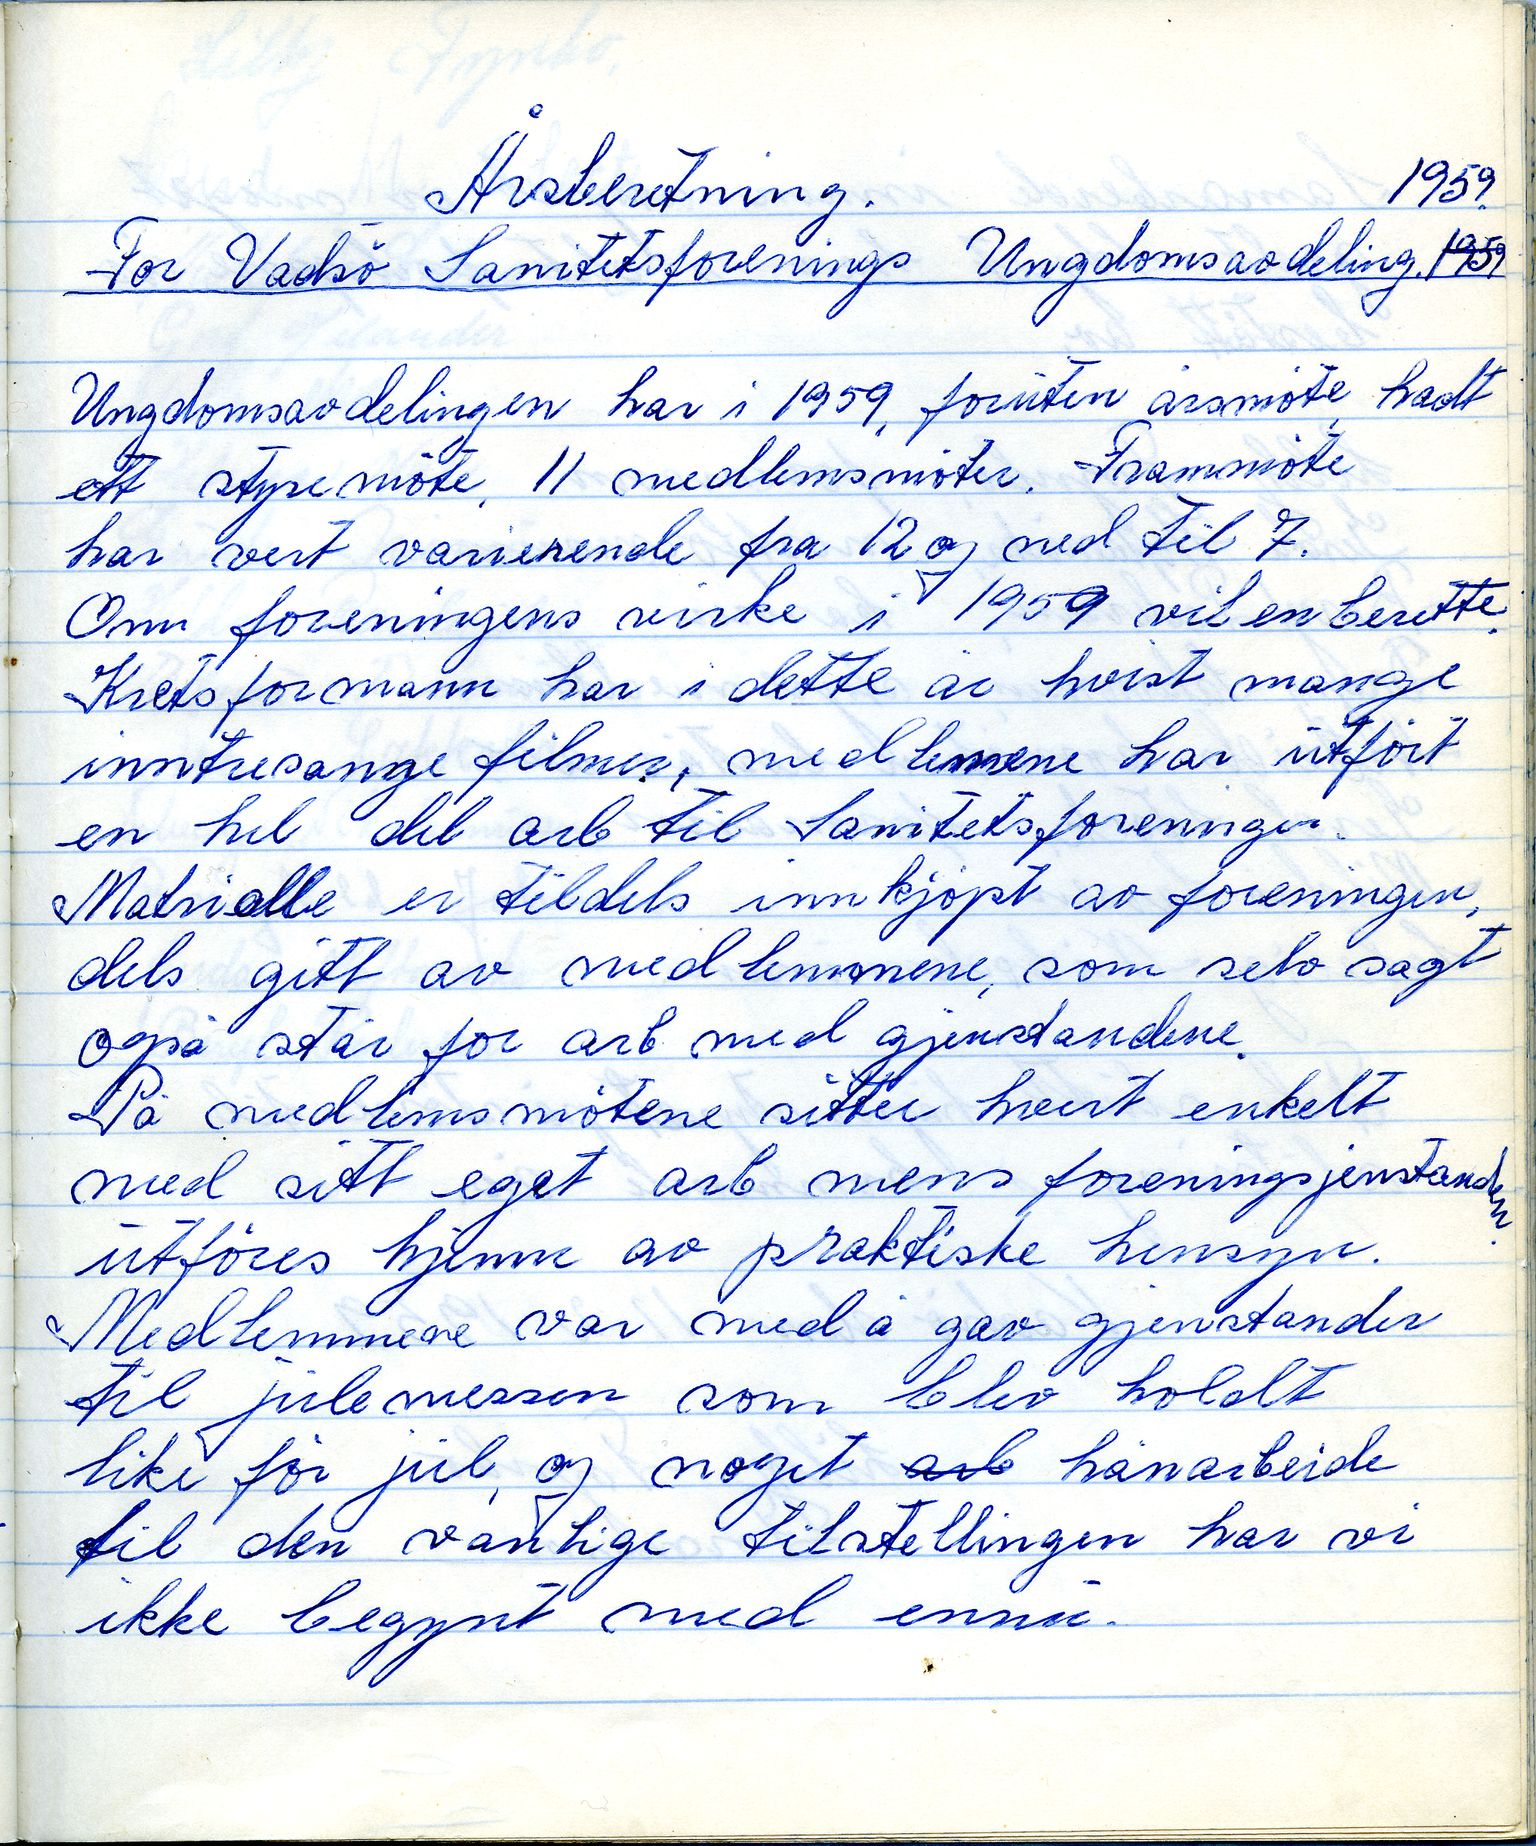 Årsberetning. 1959.
For Vadsö Sanitetsforenings Ungdomsavdeling. 1959
Ungdomsavdelingen har i 1959, foruten årsmöte, hadt
ett styremöte, 11 medlemsmöter. Frammöte
har vert varierende fra 12 og ned til 7.
Om foreningens virke i 1959 vil en berette.
Kretsformann har i dette år hvist mange
inntresange filmer, medlemene har utfört
en hel del arb til Sanitetsforeningen.
Matrialle er tildels innkjöpt av foreningen,
dels gitt av medlemmene, som selv sagt
også står for arb med gjenstandene.
På medlemsmötene sitter hvert enkelt
med sitt eget arb mens foreningsjenstanden.
utföres hjemme av praktiske hensyn.
Medlemmene var med å gav gjenstander
til julemessen som blev holdt
like för jul, og noget arb hånarbeide
til den vanlige tilstellingen har vi
ikke begynt med ennu.